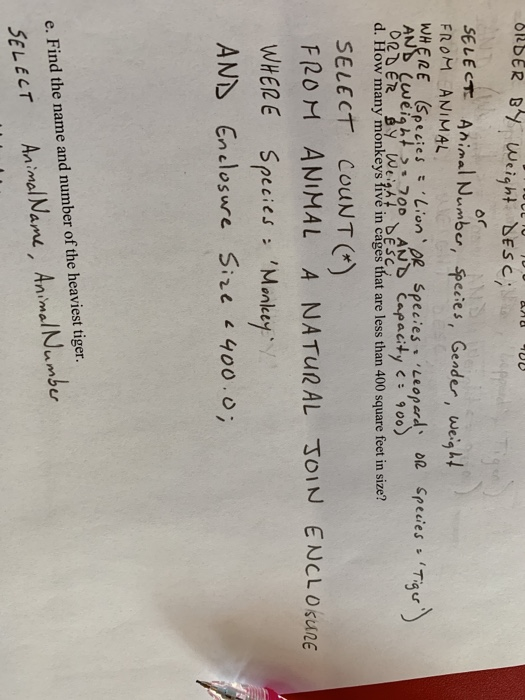 ORDER BY Weight DESC;
or
SELECT Animal Number, Species, Gender, Weight
FROM ANIMAL
WHERE (Species = 'Lion' OR Species = 'Leopard' OR Species = 'Tiger')
AND (Weight >= 700 AND Capacity <= 900)
ORDER BY Weight DESC;
d. How many monkeys live in cages that are less than 400 square feet in size?
SELECT COUNT(*)
FROM ANIMAL A NATURAL JOIN ENCLOSURE
WHERE Species = 'Monkey'
AND Enclosure Size < 400.0;
e. Find the name and number of the heaviest tiger.
SELECT AnimalName, AnimalNumber